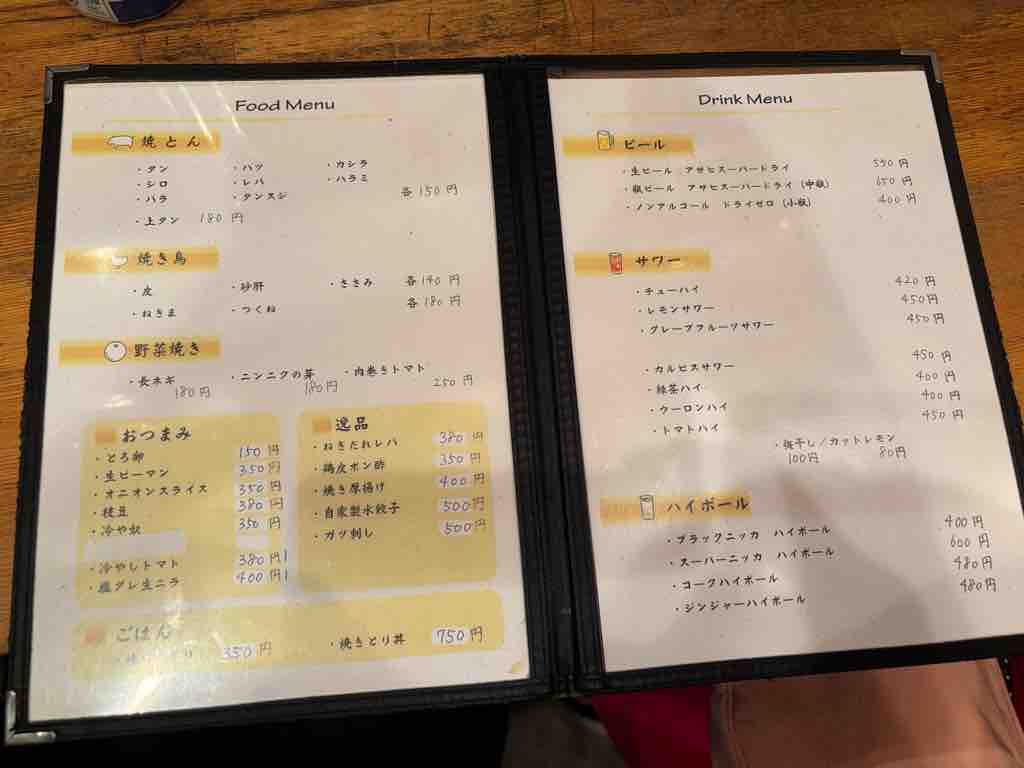 Food Menu
焼とん
・タン ・ハツ ・カシラ
・シロ ・レバ ・ハラミ
・バラ ・タンスジ 各150円
・上タン 180円
焼き鳥
・皮 ・砂肝 ・ささみ 各140円
・ねぎま ・つくね 各180円
野菜焼き
・長ネギ ・ニンニクの芽 ・肉巻きトマト
180円 180円 250円
おつまみ
・とろ卵 150円
・生ピーマン 350円
・オニオンスライス 350円
・枝豆 380円
・冷や奴 350円
・冷やしトマト 380円
・塩ダレ生ニラ 400円
逸品
・ねぎだれレバ 380円
・鶏皮ポン酢 350円
・焼き厚揚げ 400円
・自家製水餃子 500円
・ガツ刺し 500円
ごはん
350円 ・焼きとり丼 750円
Drink Menu
ビール
・生ビール アサヒスーパードライ 590円
・瓶ビール アサヒスーパードライ（中瓶） 650円
・ノンアルコール ドライゼロ（小瓶） 400円
サワー
・チューハイ 420円
・レモンサワー 450円
・グレープフルーツサワー 450円
・カルピスサワー 450円
・緑茶ハイ 400円
・ウーロンハイ 400円
・トマトハイ 450円
・梅干し／カットレモン
100円 80円
ハイボール
・ブラックニッカ ハイボール 400円
・スーパーニッカ ハイボール 600円
・コークハイボール 480円
・ジンジャーハイボール 480円